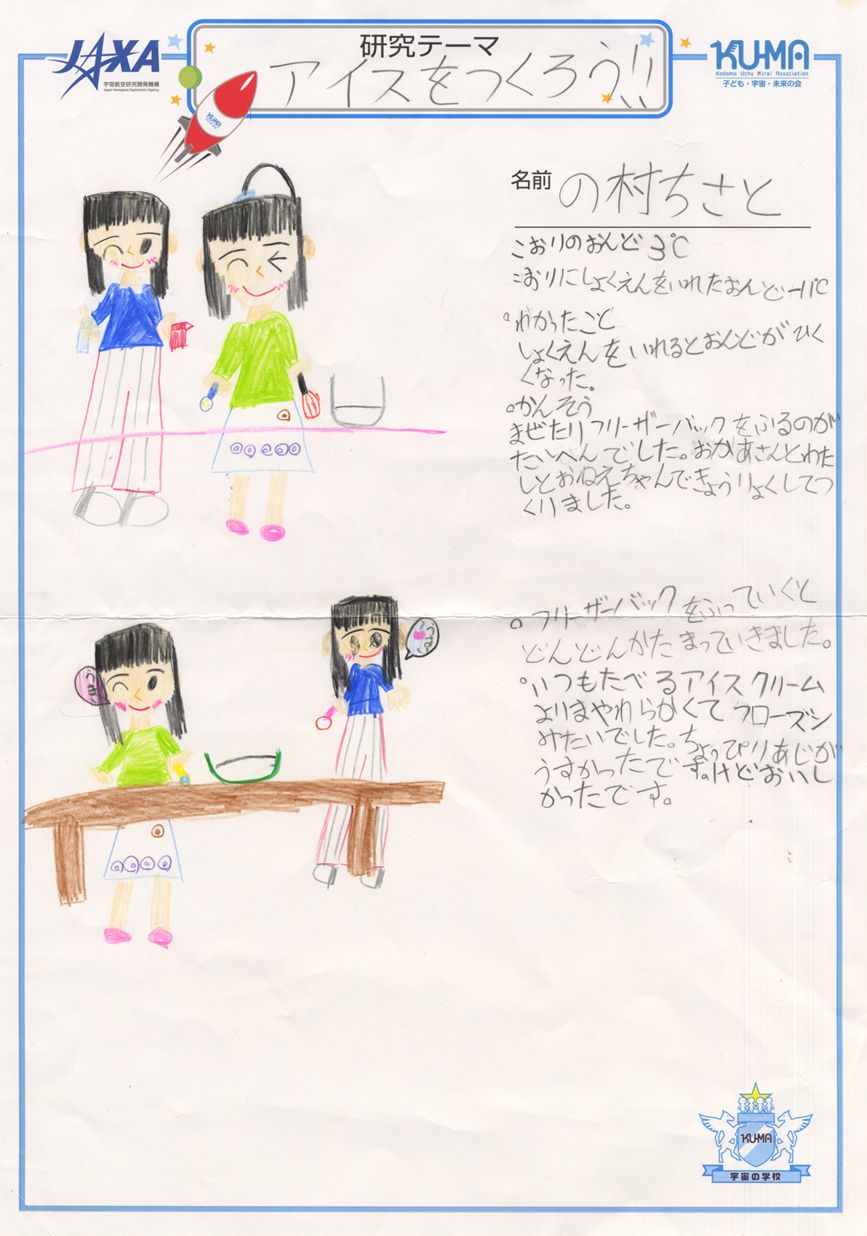 JAXA
宇宙航空研究開発機構
Japan Aerospace Exploration Agency
研究テーマ
アイスをつくろう!!
KU-MA
Kodomo Uchu Mirai Association
子ども・宇宙・未来の会
KU-MA
名前 の村ちさと
こおりのおんど 3℃
こおりにしょくえんをいれたおんど -11℃
。わかったこと
しょくえんをいれるとおんどがひく
くなった。
。かんそう
まぜたりフリーザーバックをふるのが
たいへんでした。おかあさんとわた
しとおねえちゃんできょうりょくしてつ
くりました。
。フリーザーバックをふっていくと
どんどんかたまっていきました。
。いつもたべるアイスクリーム
よりまやわらかくてフローズン
みたいでした。ちょっぴりあじが
うすかったです。けどおいし
かったです。
KU-MA
宇宙の学校